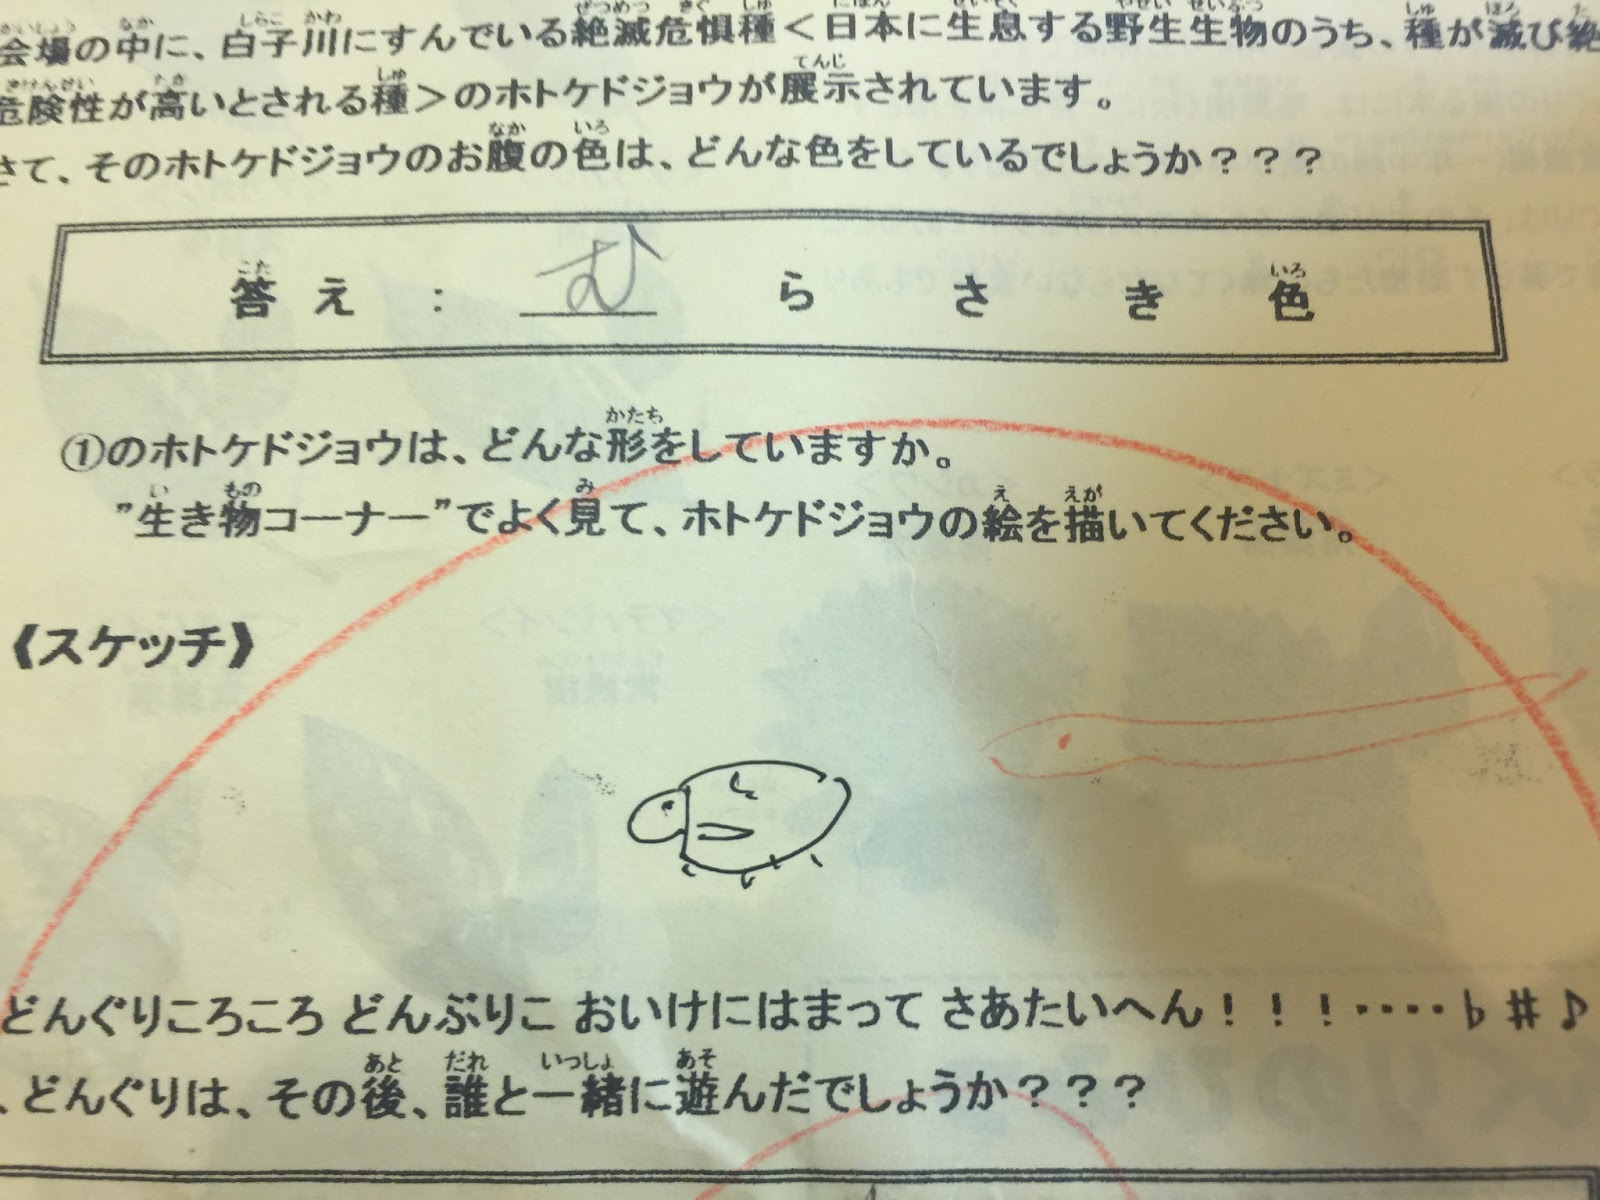 会場の中に、白子川にすんでいる絶滅危惧種＜日本に生息する野生生物のうち、種が滅び絶
危険性が高いとされる種＞のホトケドジョウが展示されています。
さて、そのホトケドジョウのお腹の色は、どんな色をしているでしょうか？？？
答え：むらさき色
①のホトケドジョウは、どんな形をしていますか。
"生き物コーナー"でよく見て、ホトケドジョウの絵を描いてください。
《スケッチ》
どんぐりころころ どんぶりこ おいけにはまって さあたいへん！！！‥‥♭♯♪
、どんぐりは、その後、誰と一緒に遊んだでしょうか？？？